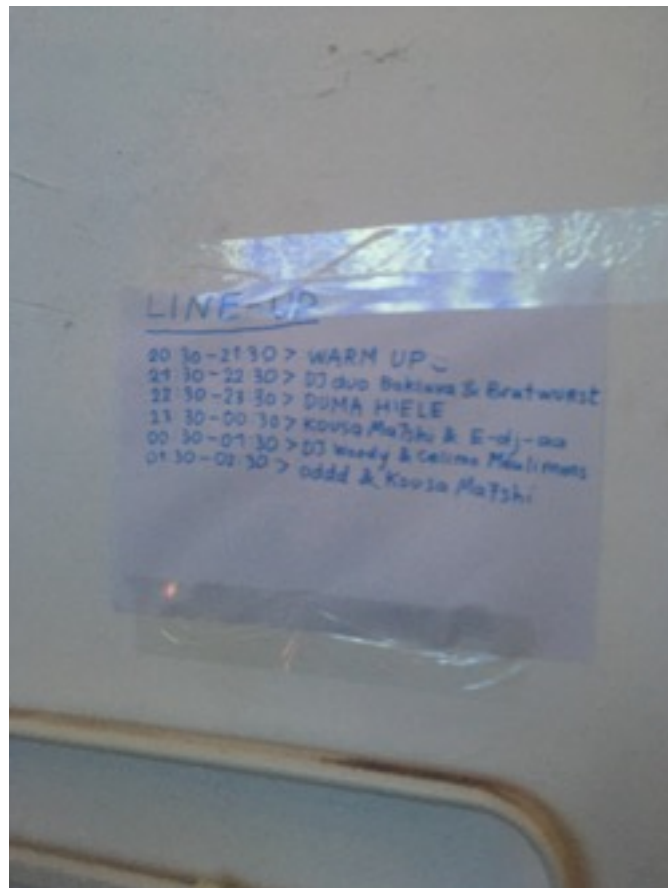 LINE-UP
20:30-21:30 > WARM UP
21:30-22:30 > DJ duo Baklava & Bratwurst
22:30-23:30 > DUMA HIELE
23:30-00:30 > Kousa Ma7shi & E-dj-aa
00:30-01:30 > DJ Woody & Celimo
01:30-02:30 > oddd & Kousa Ma7shi